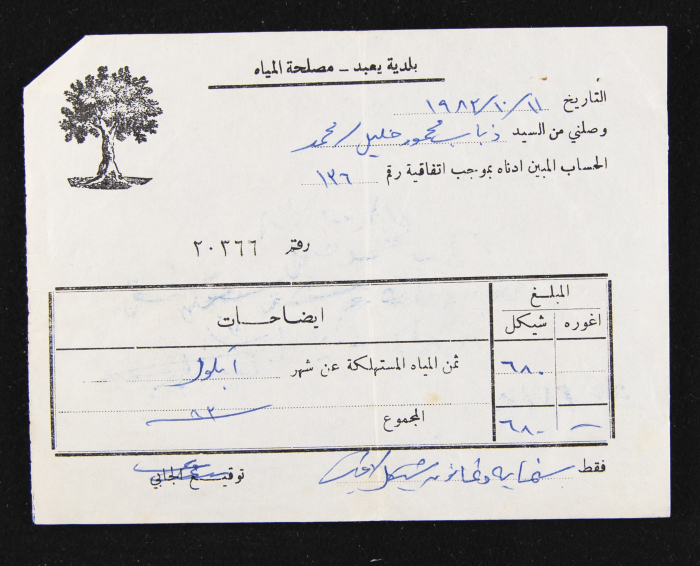 بلدية يعبد - مصلحة المياه
التاريخ ١٩٨٢/١٠/١١
وصلني من السيد ذياب محمود خليل / محمد
الحساب المبين ادناه بموجب اتفاقية رقم ١٣٦
رقم ٢٠٣٦٦
المبلغ
اغوره شيكل ايضاحات
٦٨٠ ثمن المياه المستهلكة عن شهر أيلول
— ٦٨٠ المجموع ٨٢
فقط ستماية وثمانون شيكل لا غير توقيع الجابي